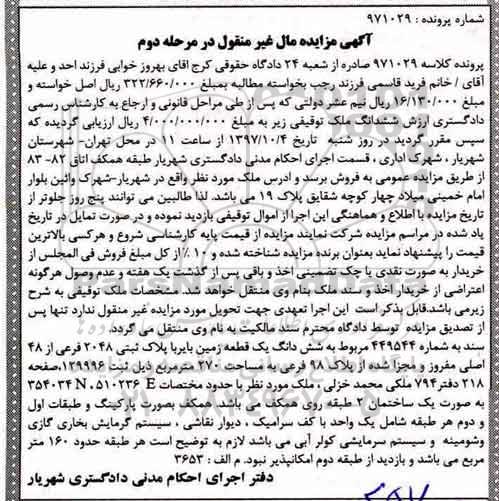 شماره پرونده : ۹۷۱۰۲۹
آگهی مزایده مال غیر منقول در مرحله دوم
پرونده کلاسه ۹۷۱۰۲۹ صادره از شعبه ۲۴ دادگاه حقوقی کرج اقای بهروز خوابی فرزند احد و علیه
آقای / خانم فرید قاسمی فرزند رجب بخواسته مطالبه بمبلغ ۳۲۲/۶۶۰/۰۰۰ ریال اصل خواسته و
مبلغ ۱۶/۱۳۰/۰۰۰ ریال نیم عشر دولتی که پس از طی مراحل قانونی و ارجاع به کارشناس رسمی
دادگستری ارزش ششدانگ ملک توقیفی زیر به مبلغ ۴/۰۰۰/۰۰۰/۰۰۰ ریال ارزیابی گردیده که
سپس مقرر گردید در روز شنبه تاریخ ۱۳۹۷/۱۰/۴ از ساعت ۱۱ در محل تهران- شهرستان
شهریار ، شهرک اداری ، قسمت اجرای احکام مدنی دادگستری شهریار طبقه همکف اتاق ۸۲- ۸۳
از طریق مزایده عمومی به فروش برسد و ادرس ملک مورد نظر واقع در شهریار-شهرک وائین بلوار
امام خمینی میلاد چهار کوچه شقایق پلاک ۱۹ می باشد. لذا طالبین می توانند پنج روز جلوتر از
تاریخ مزایده با اطلاع و هماهنگی این اجرا از اموال توقیفی بازدید نموده و در صورت تمایل در تاریخ
یاد شده در مراسم مزایده شرکت نمایند مزایده از قیمت پایه کارشناسی شروع و هرکسی بالاترین
قیمت را پیشنهاد نماید بعنوان برنده مزایده شناخته شده و ۱۰٪ از کل مبلغ فروش فی المجلس از
خریدار به صورت نقدی یا چک تضمینی اخذ و باقی پس از گذشت یک هفته و عدم وصول هرگونه
اعتراضی از خریدار اخذ و سند ملک بنام وی منتقل خواهد شد. مشخصات ملک توقیفی به شرح
زیرمی باشد.قابل بذکر است این اجرا تعهدی جهت تحویل مورد مزایده غیر منقول ندارد تنها پس
از تصدیق مزایده توسط دادگاه محترم سند مالکیت به نام وی منتقل می گردد.
سند به شماره ۴۴۹۵۴۴ مربوط به شش دانگ یک قطعه زمین بایربا پلاک ثبتی ۲۰۴۸ فرعی از ۴۸
اصلی مفروز و مجزا شده از پلاک ۹۸ فرعی به مساحت ۲۷۰ مترمربع ذیل ثبت ۱۲۹۹۹۶،صفحه
۲۱۸ دفتر۷۹۴ ملکی محمد خزلی ، ملک مورد نظر با حدود مختصات ۳۵۴۰۳۴ N ۰۵۱۰۲۳۶ E
به صورت یک ساختمان ۲ طبقه روی همکف می باشد. همکف بصورت پارکینگ و طبقات اول
و دوم هر طبقه شامل یک واحد با کف سرامیک ، دیوار نقاشی ، سیستم گرمایش بخاری گازی
وشومینه و سیستم سرمایشی کولر آبی می باشد لازم به توضیح است هر طبقه حدود ۱۶۰ متر
مربع می باشد و بازدید از طبقه دوم امکانپذیر نبود. م الف : ۳۶۵۳
دفتر اجرای احکام مدنی دادگستری شهریار